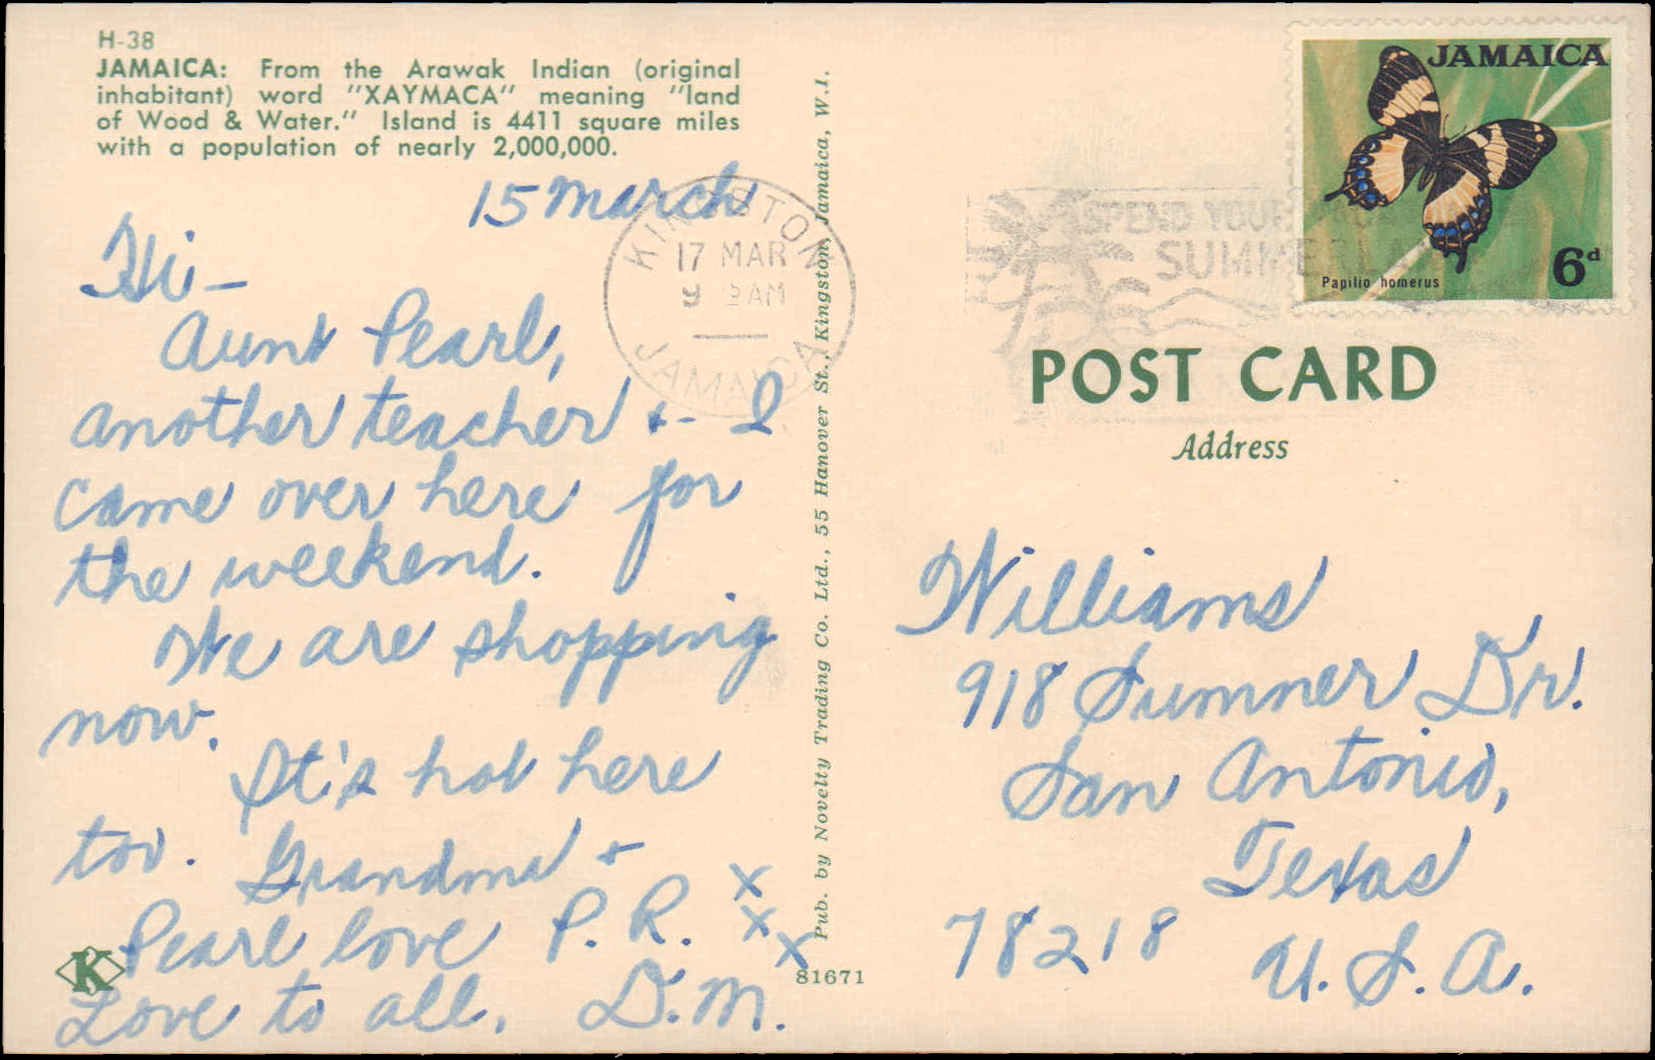 H-38
JAMAICA: From the Arawak Indian (original
inhabitant) word "XAYMACA" meaning "land
of Wood & Water." Island is 4411 square miles
with a population of nearly 2,000,000.
15 March
Hi-
Aunt Pearl,
another teacher + I
came over here for
the weekend.
We are shopping
now.
It's hot here
too. Grandma +
Pearl love P. R. x
x
x
Love to all, D.M.
K
KINGSTON
17 MAR
9 AM
JAMAICA
Pub. by Novelty Trading Co. Ltd., 55 Hanover St., Kingston, Jamaica, W.I.
81671
SPEND YOUR
SUMMER
JAMAICA
Papilio homerus
6d
POST CARD
Address
Williams
918 Sumner Dr.
San Antonio,
Texas
78218 U.S.A.